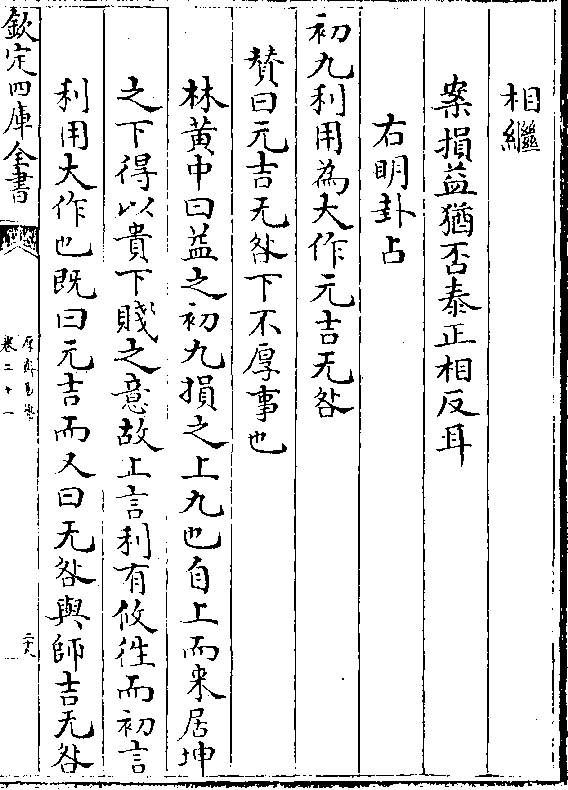 相繼
案損益猶否泰正相反耳
右明卦占
初九利用為大作元吉无咎
賛曰元吉无咎下不厚事也
林黄中曰益之初九損之上九也自上而来居坤
之下得以貴下賤之意故上言利有攸徃而初言
利用大作也既曰元吉而又曰无咎與師吉无咎
欽定四庫全書
厚齋易學
卷二十一